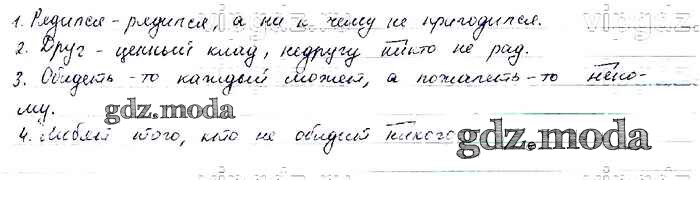 1. Рядился - рядился, а ни к чему не пригодился.
2. Друг - ценный клад, недругу никто не рад.
3. Обидеть - то каждый может, а пожалеть - то неко-
му.
gdz.moda
4. Любят того, кто не обидит никого
gdz.moda